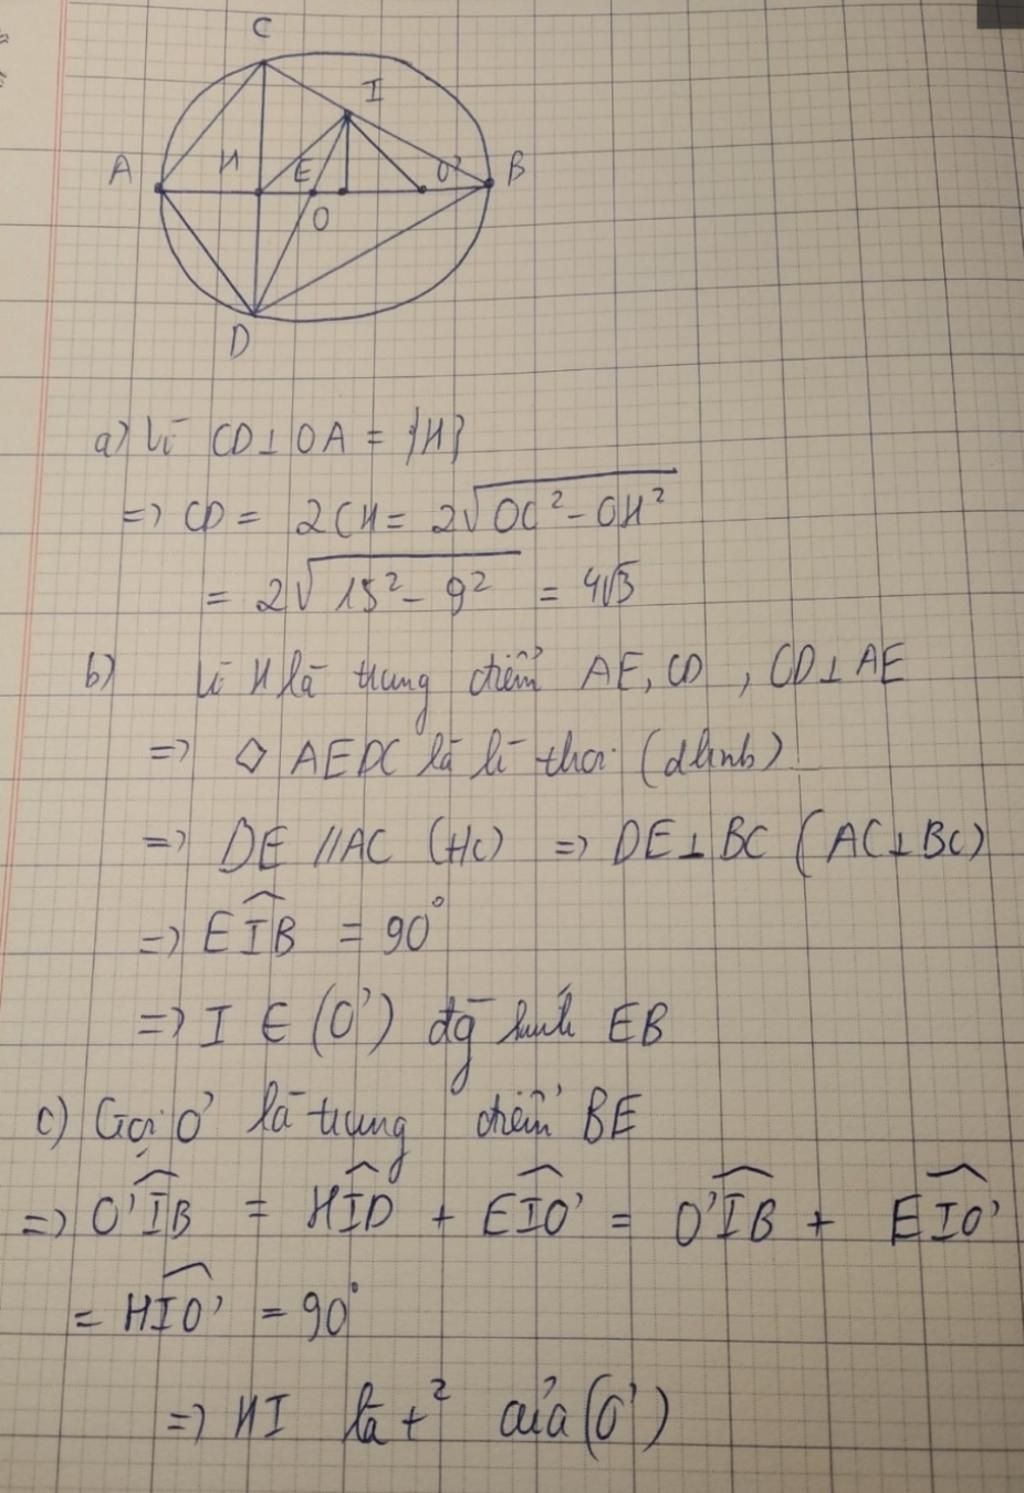 C
I
A H E O' B
O
D
a) Vì CD ⊥ OA = {H}
=> CD = 2CH = 2√(OC² - OH²)
= 2√(15² - 9²) = 4√3
b) Vì H là trung điểm AE, CD , CD ⊥ AE
=> ◇ AEDC là h thoi (dhnb)
=> DE // AC (HC) => DE ⊥ BC (AC ⊥ BC)
=> EÎB = 90°
=> I ∈ (O') đg kính EB
c) Gọi O' là trung điểm BE
=> O'ÎB = HÎD + EÎO' = O'ÎB + EÎO'
= HÎO' = 90°
=> HI là t² của (O')